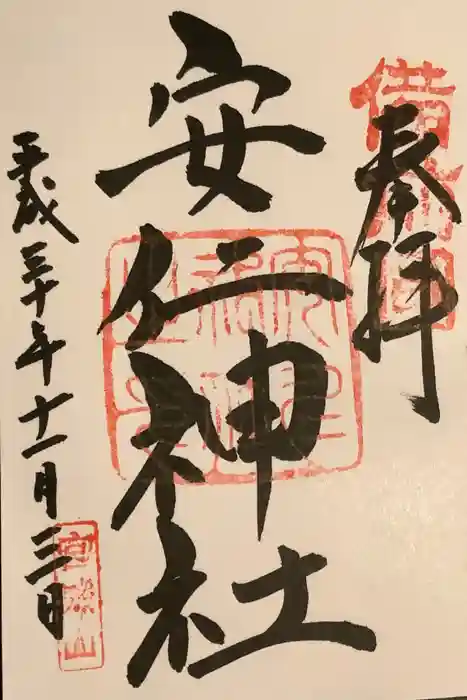 奉拝
備前国
安仁神社
平成三十年十一月三日